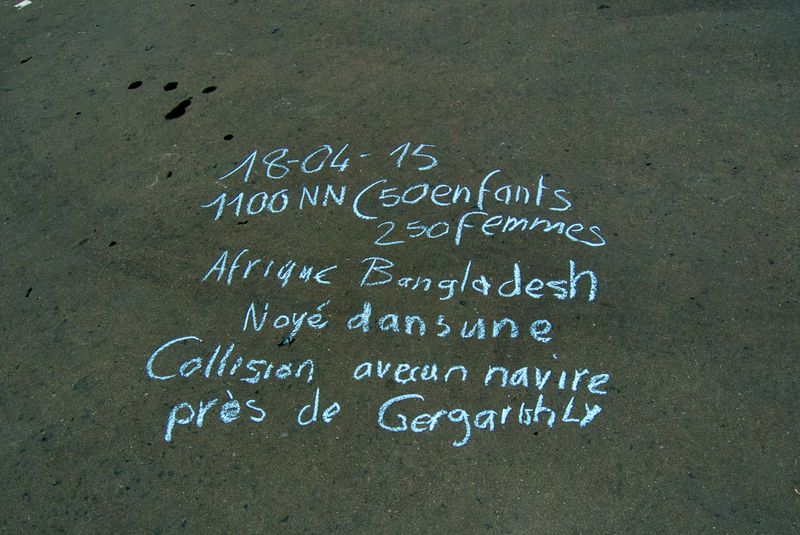 18-04-15
1100 NN (50 enfants
250 femmes
Afrique Bangladesh
Noyé dans une
Collision avec un navire
près de Gergarish Ly